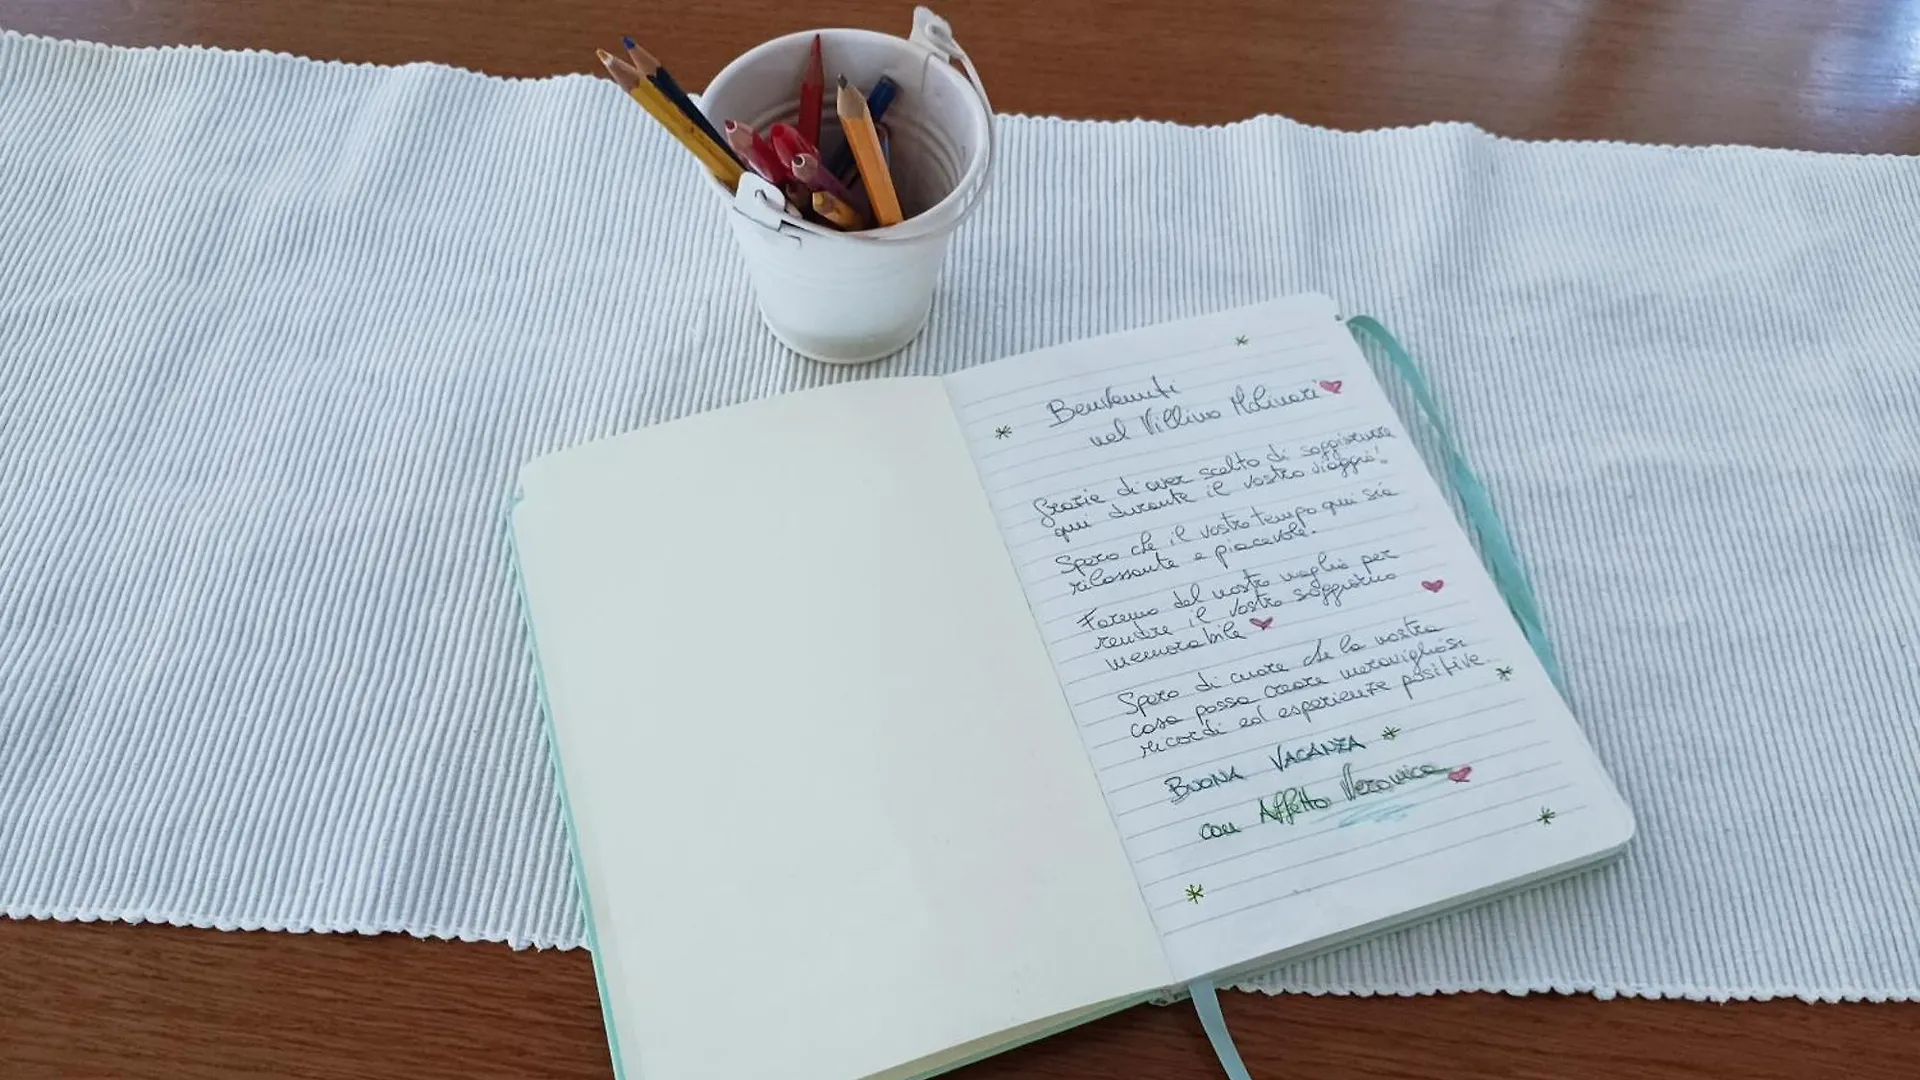 Benvenuti
nel Villino Molinari
Grazie di aver scelto di soggiornare
qui durante il vostro viaggio!
Spero che il vostro tempo qui sia
rilassante e piacevole.
Faremo del nostro meglio per
rendere il vostro soggiorno
memorabile
Spero di cuore che la nostra
casa possa creare meravigliosi
ricordi ed esperienze positive.
BUONA VACANZA
con Affetto Veronica